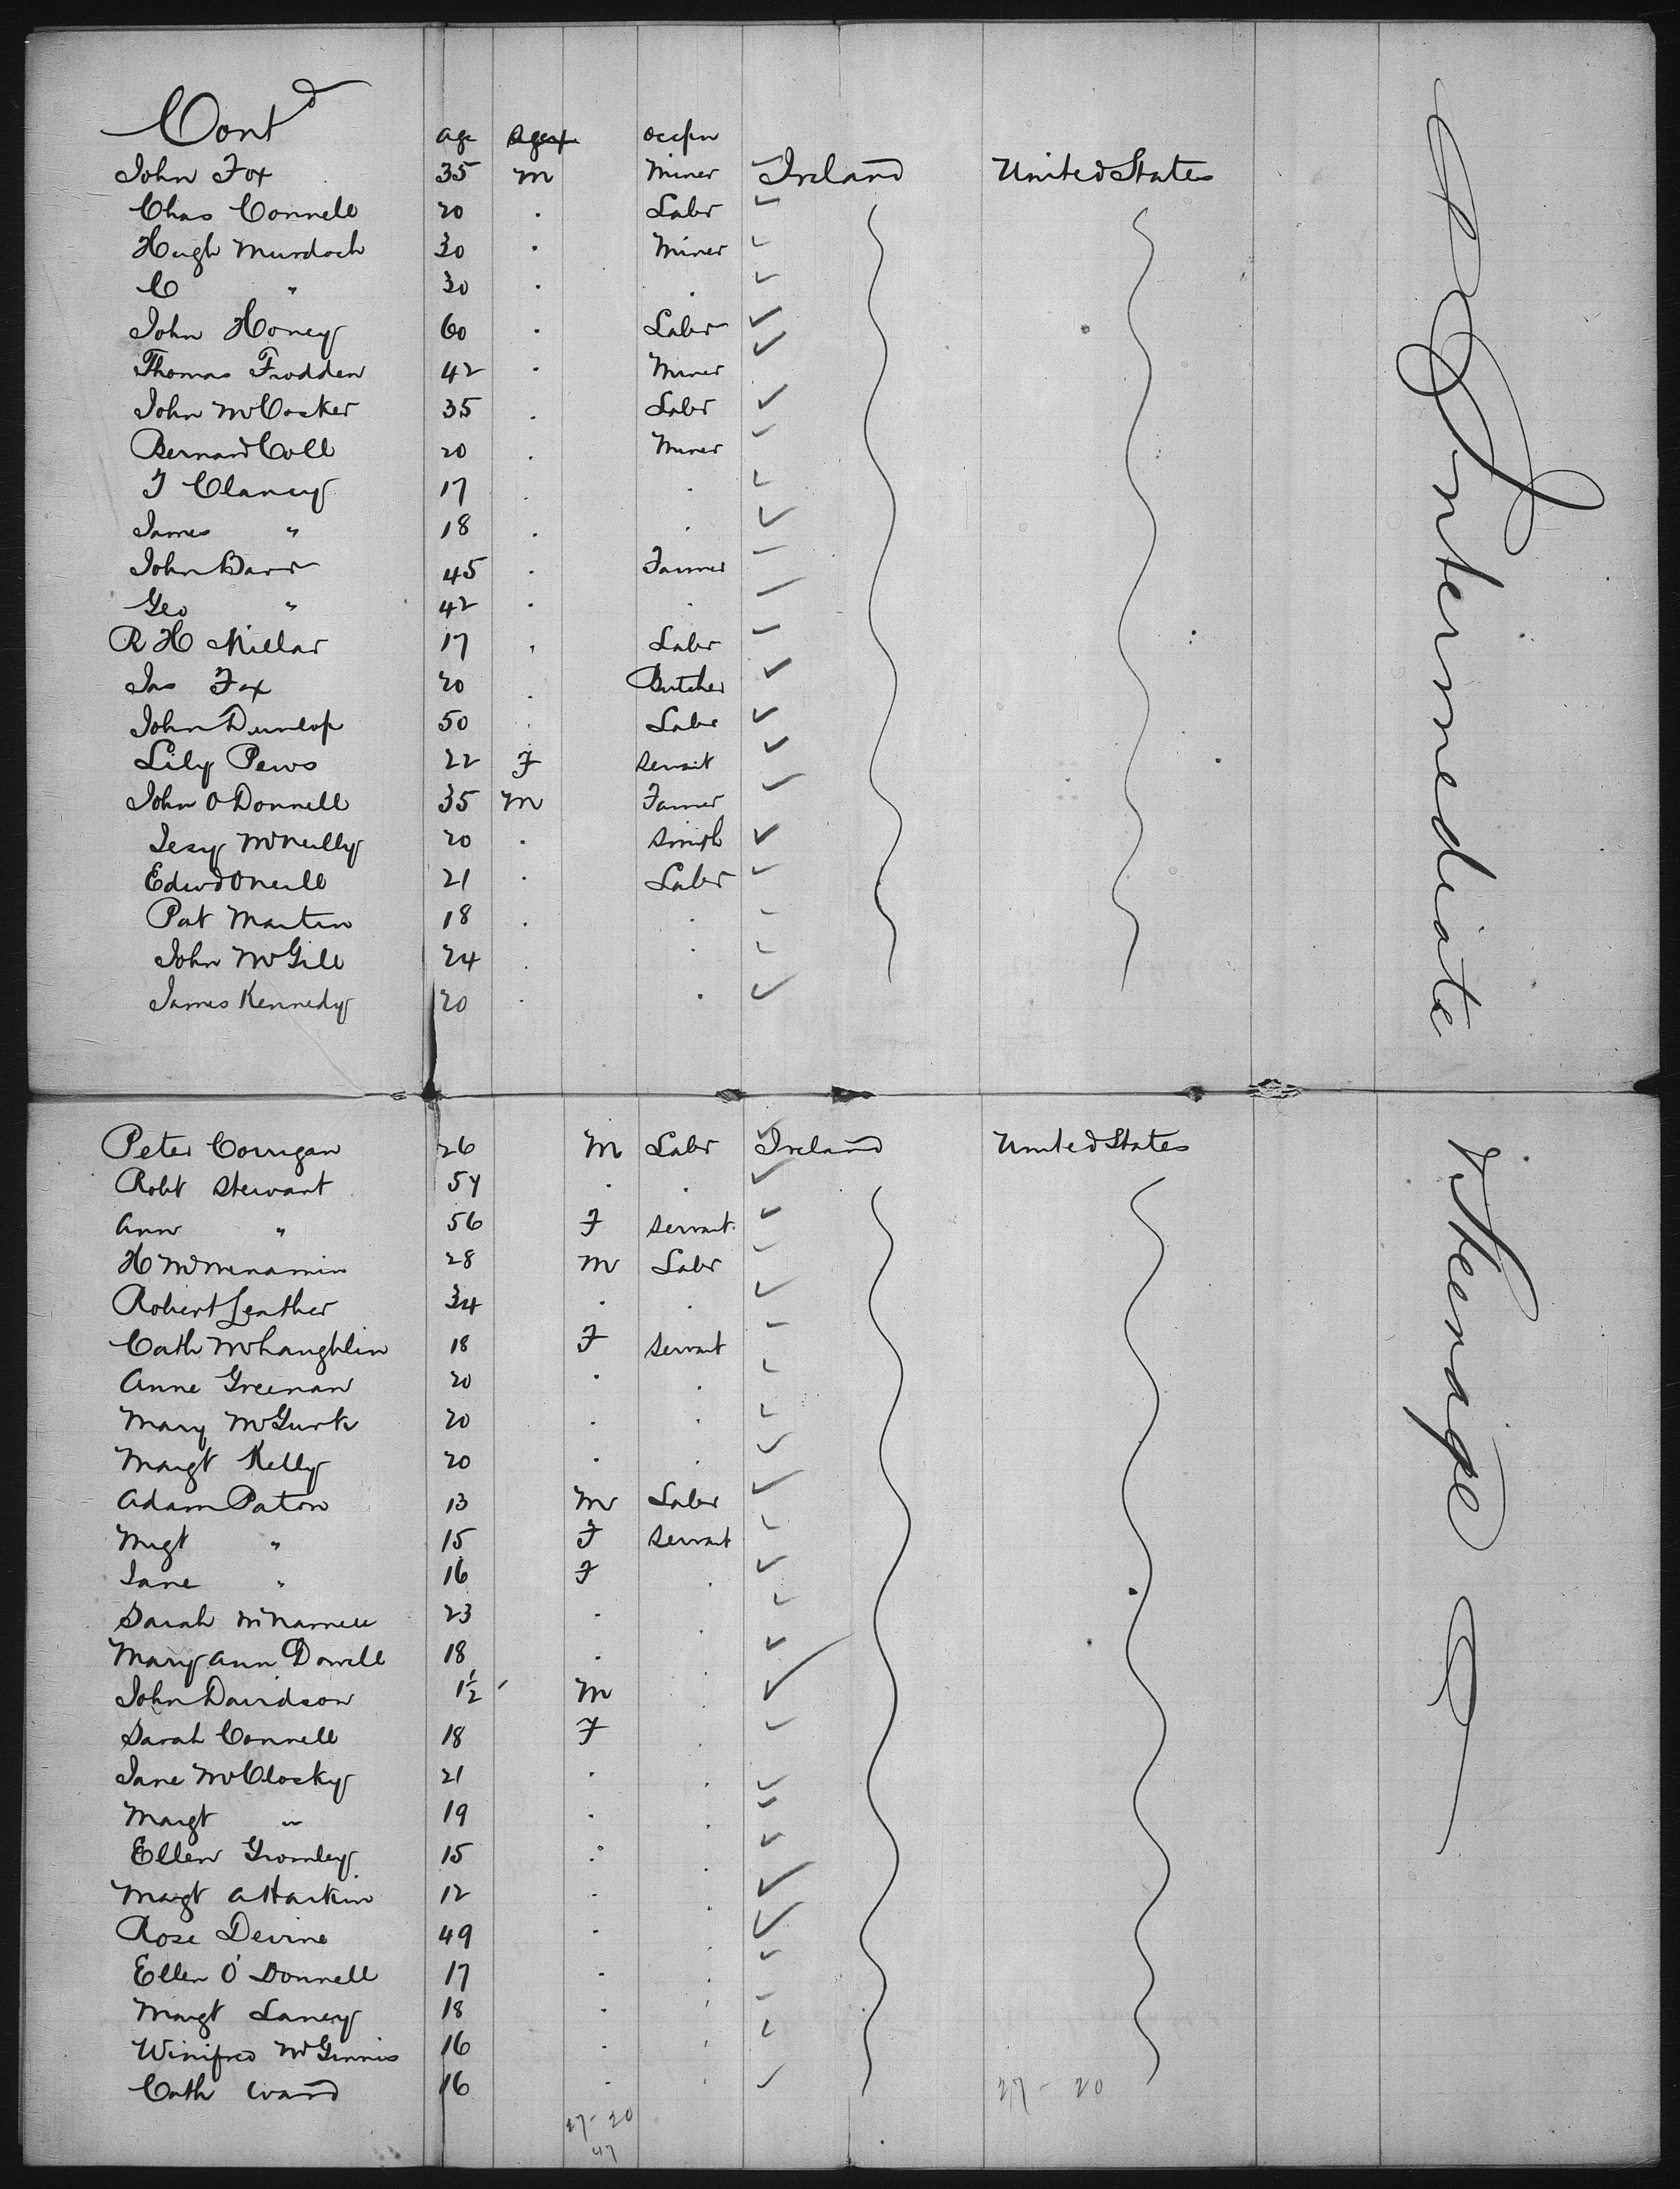 Contd age occpn
John Fox 35 m Miner Ireland United States
Chas Connell 20 . Labr
Hugh Murdoch 30 . Miner
C " 30 . .
John Honey 60 . Labr
Thomas Frodden 42 . Miner
John McCosker 35 . Labr
Bernard Coll 20 . Miner
J Clancy 17 . .
James " 18 . .
John Barr 45 . Farmer
Geo " 42 . .
R H Millar 17 . Labr
Jas Fox 20 . Butcher
John Dunlop 50 . Labr
Lily Pews 22 F Servait
John O Donnell 35 M Farmer
McNeilly 20 . Smith
Edwd ONeill 21 . Labr
Pat Martin 18 . .
John McGill 24 . .
James Kennedy 20 . .
Intermediate
Peter Corrigan 26 M Labr Ireland United States
Robt Stewart 54 . .
Ann " 56 F Servant
H McMenamin 28 M Labr
Robert Leather 34 . .
Cath McLaughlin 18 F Servant
Anne Greenan 20 . .
Mary McGurk 20 . .
Margt Kelly 20 . .
Adam Paton 13 M Labr
Mgt " 15 F Servant
Jane " 16 F .
Sarah 23 . .
Mary Ann Dowell 18 . .
John Davidson 1½ M .
Sarah Connell 18 F .
Jane McClosky 21 . .
Margt " 19 . .
Ellen Gromley 15 . .
Margt A Harkin 12 . .
Rose Devine 49 . .
Ellen O'Donnell 17 . .
Margt Laney 18 . .
Winifred McGinnis 16 . .
Cath Ward 16 . .
27 - 20
27 - 20
47
Steerage